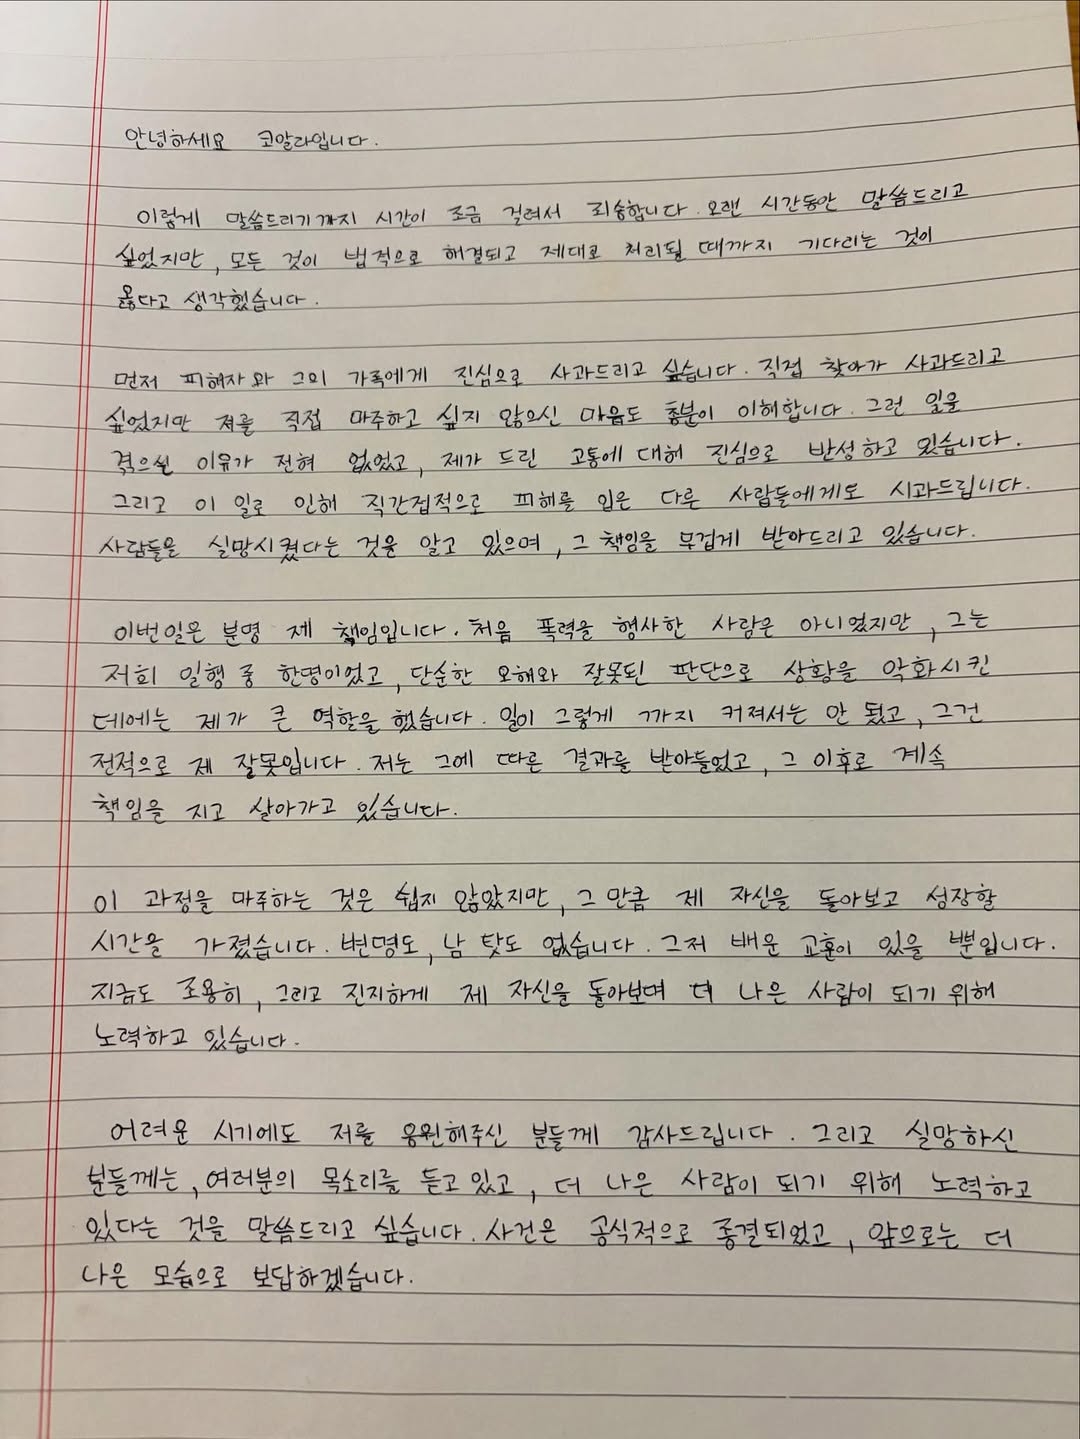 안녕하세요 코알라입니다.
이렇게 말씀드리기까지 시간이 조금 걸려서 죄송합니다. 오랜 시간동안 말씀드리고
싶었지만, 모든 것이 법적으로 해결되고 제대로 처리될 때까지 기다리는 것이
옳다고 생각했습니다.
먼저 피해자와 그의 가족에게 진심으로 사과드리고 싶습니다. 직접 찾아가 사과드리고
싶었지만 저를 직접 마주하고 싶지 않으신 마음도 충분이 이해합니다. 그런 일을
겪으실 이유가 전혀 없었고, 제가 드린 고통에 대해 진심으로 반성하고 있습니다.
그리고 이 일로 인해 직간접적으로 피해를 입은 다른 사람들에게도 사과드립니다.
사람들을 실망시켰다는 것을 알고 있으며, 그 책임을 무겁게 받아드리고 있습니다.
이번일은 분명 제 책임입니다. 처음 폭력을 행사한 사람은 아니었지만, 그는
저희 일행 중 한명이었고, 단순한 오해와 잘못된 판단으로 상황을 악화시킨
데에는 제가 큰 역할을 했습니다. 일이 그렇게 까지 커져서는 안 됐고, 그건
전적으로 제 잘못입니다. 저는 그에 따른 결과를 받아들었고, 그 이후로 계속
책임을 지고 살아가고 있습니다.
이 과정을 마주하는 것은 쉽지 않았지만, 그 만큼 제 자신을 돌아보고 성장할
시간을 가졌습니다. 변명도, 남 탓도 없습니다. 그저 배운 교훈이 있을 뿐입니다.
지금도 조용히, 그리고 진지하게 제 자신을 돌아보며 더 나은 사람이 되기 위해
노력하고 있습니다.
어려운 시기에도 저를 응원해주신 분들께 감사드립니다. 그리고 실망하신
분들께는, 여러분의 목소리를 듣고 있고, 더 나은 사람이 되기 위해 노력하고
있다는 것을 말씀드리고 싶습니다. 사건은 공식적으로 종결되었고, 앞으로는 더
나은 모습으로 보답하겠습니다.